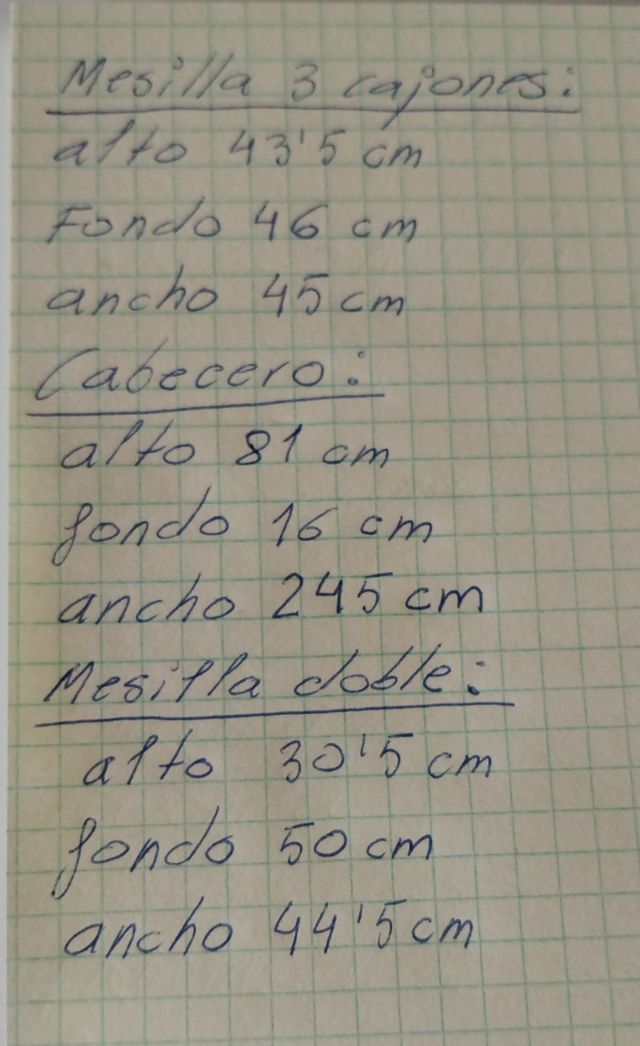 Mesilla 3 cajones:
alto 43'5 cm
Fondo 46 cm
ancho 45 cm
Cabecero:
alto 81 cm
fondo 16 cm
ancho 245 cm
Mesilla doble:
alto 30'5 cm
fondo 50 cm
ancho 44'5 cm